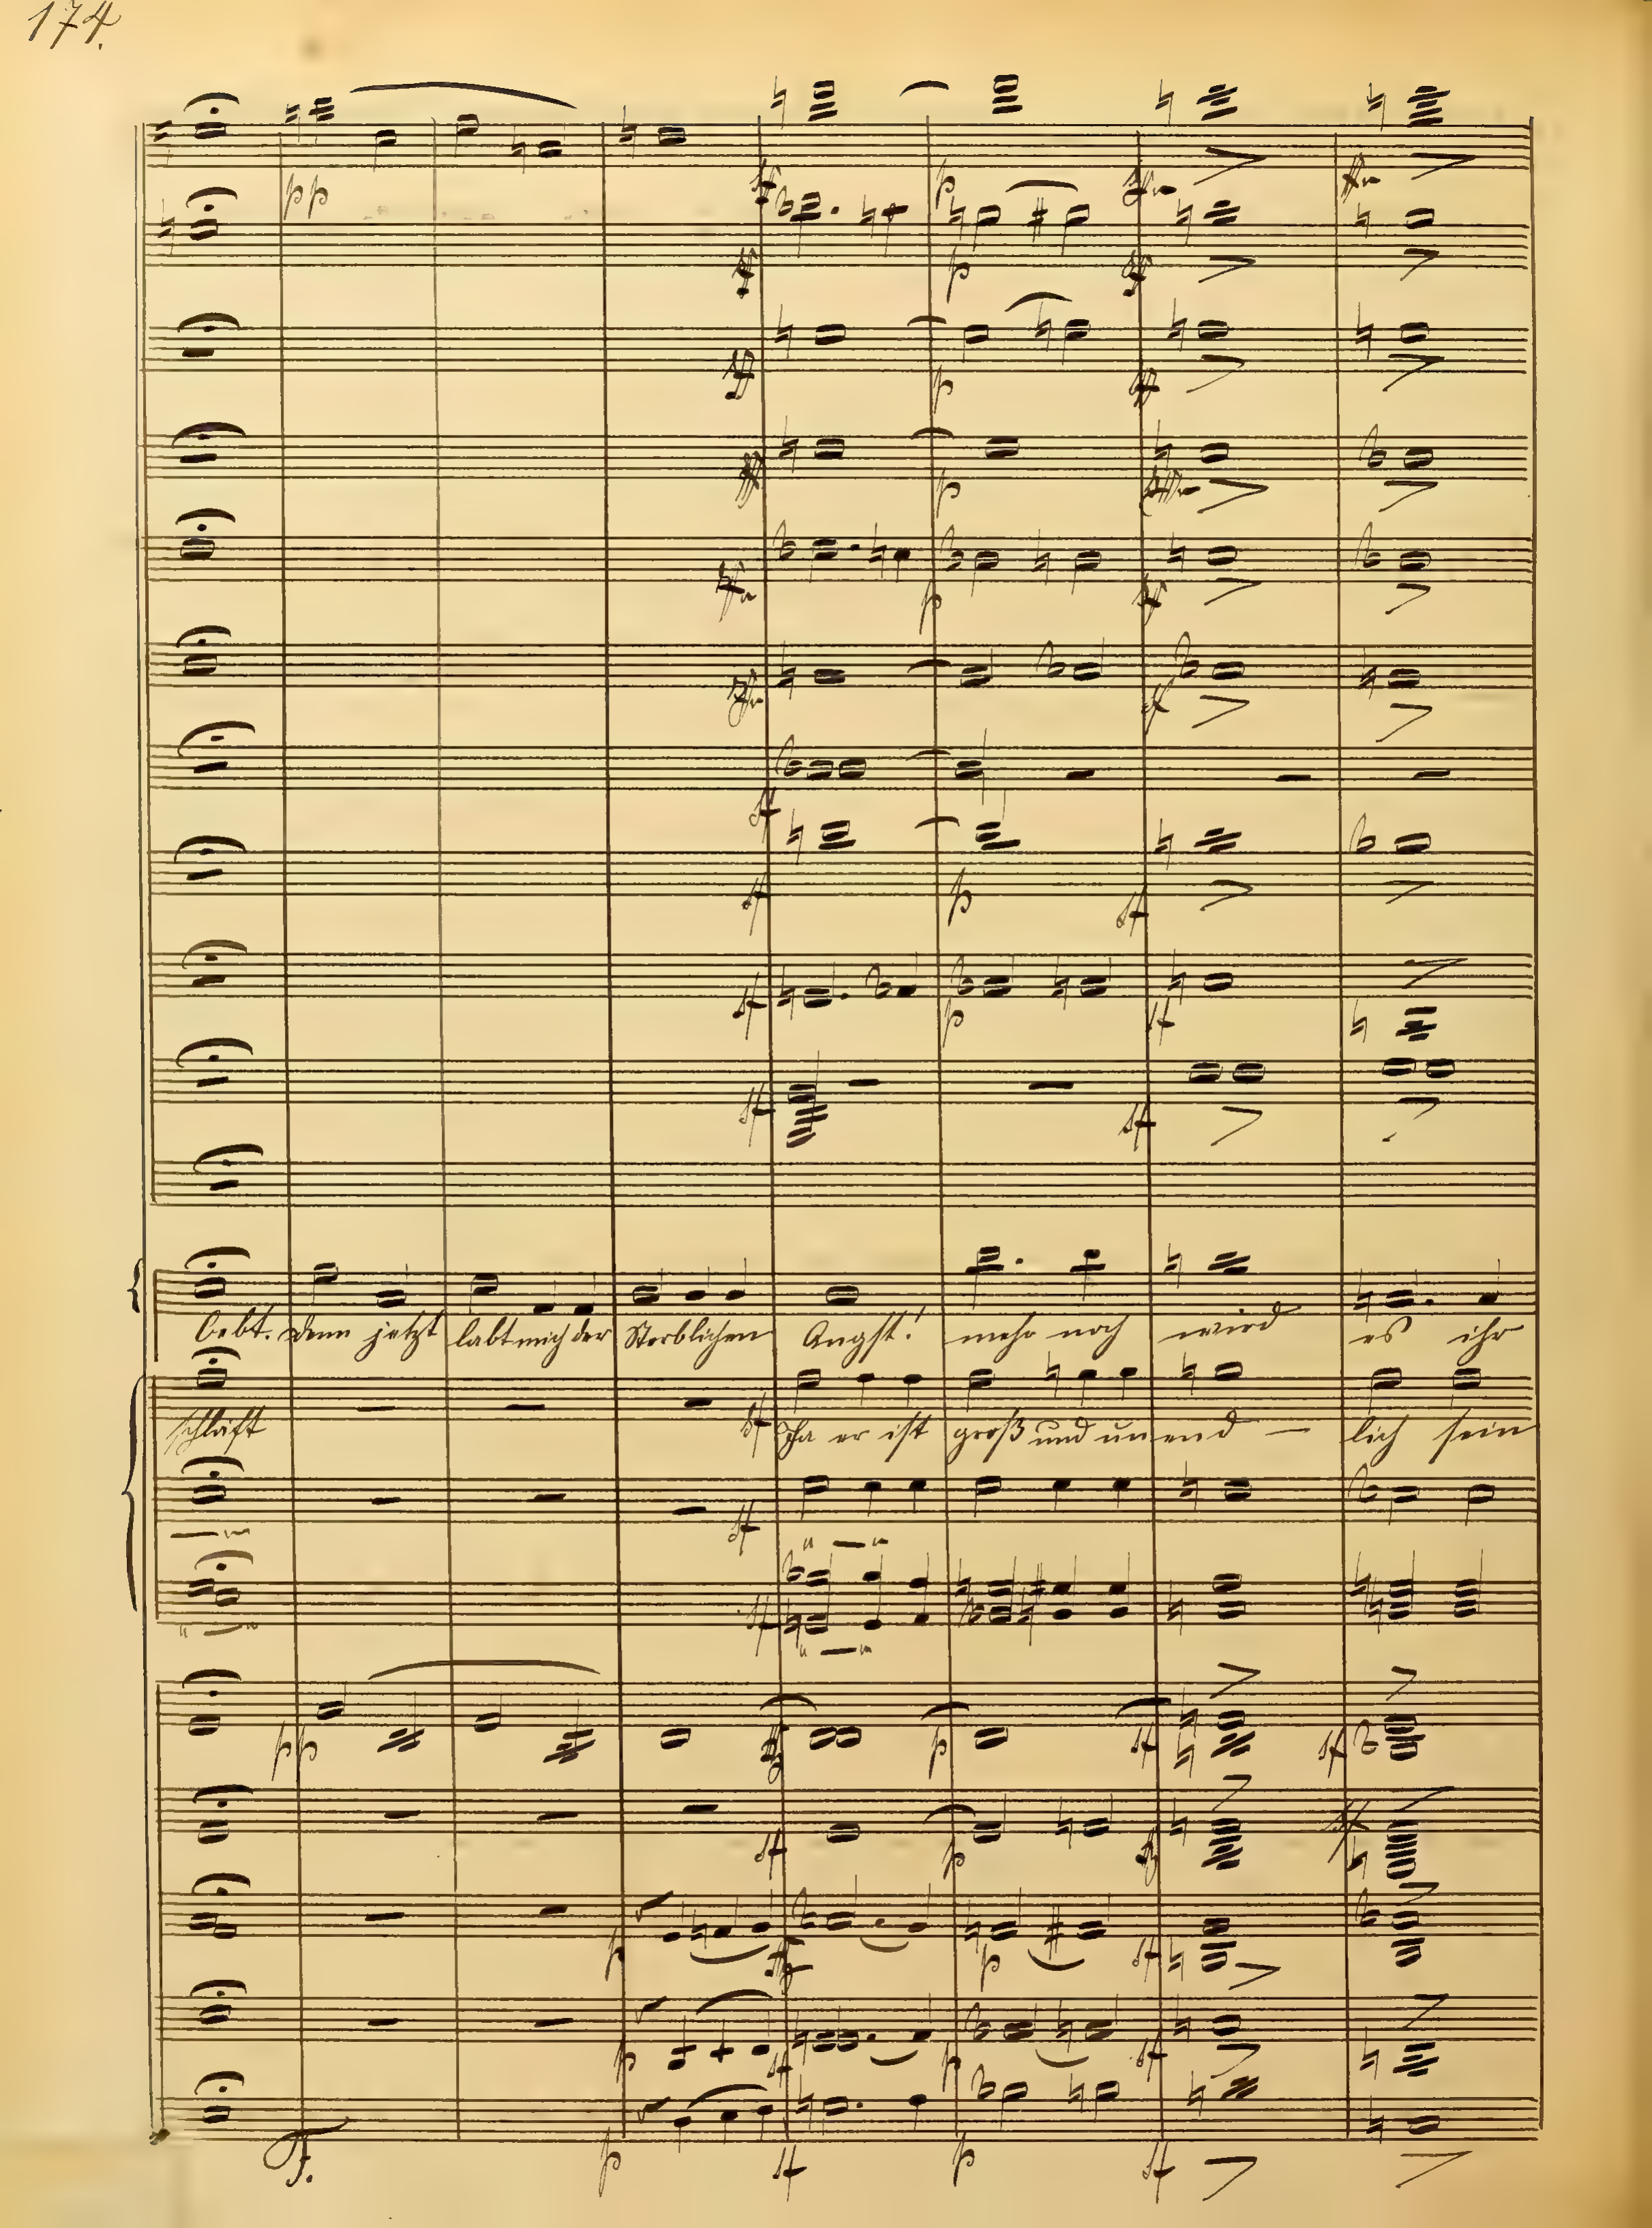 174.
pp
p
p
p
p
p
p
p
p
bebt. denn jetzt labt mich der Sterblichen Angst! mehr noch wird es ihr
schläft Ja er ist groß und unend — lich sein
pp
p
p
p
p
p
p
p
p
F.